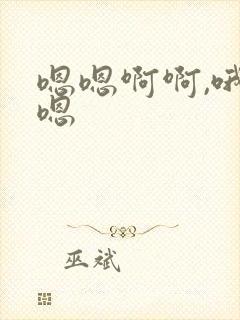 嗯嗯啊啊,哦
嗯
巫斌